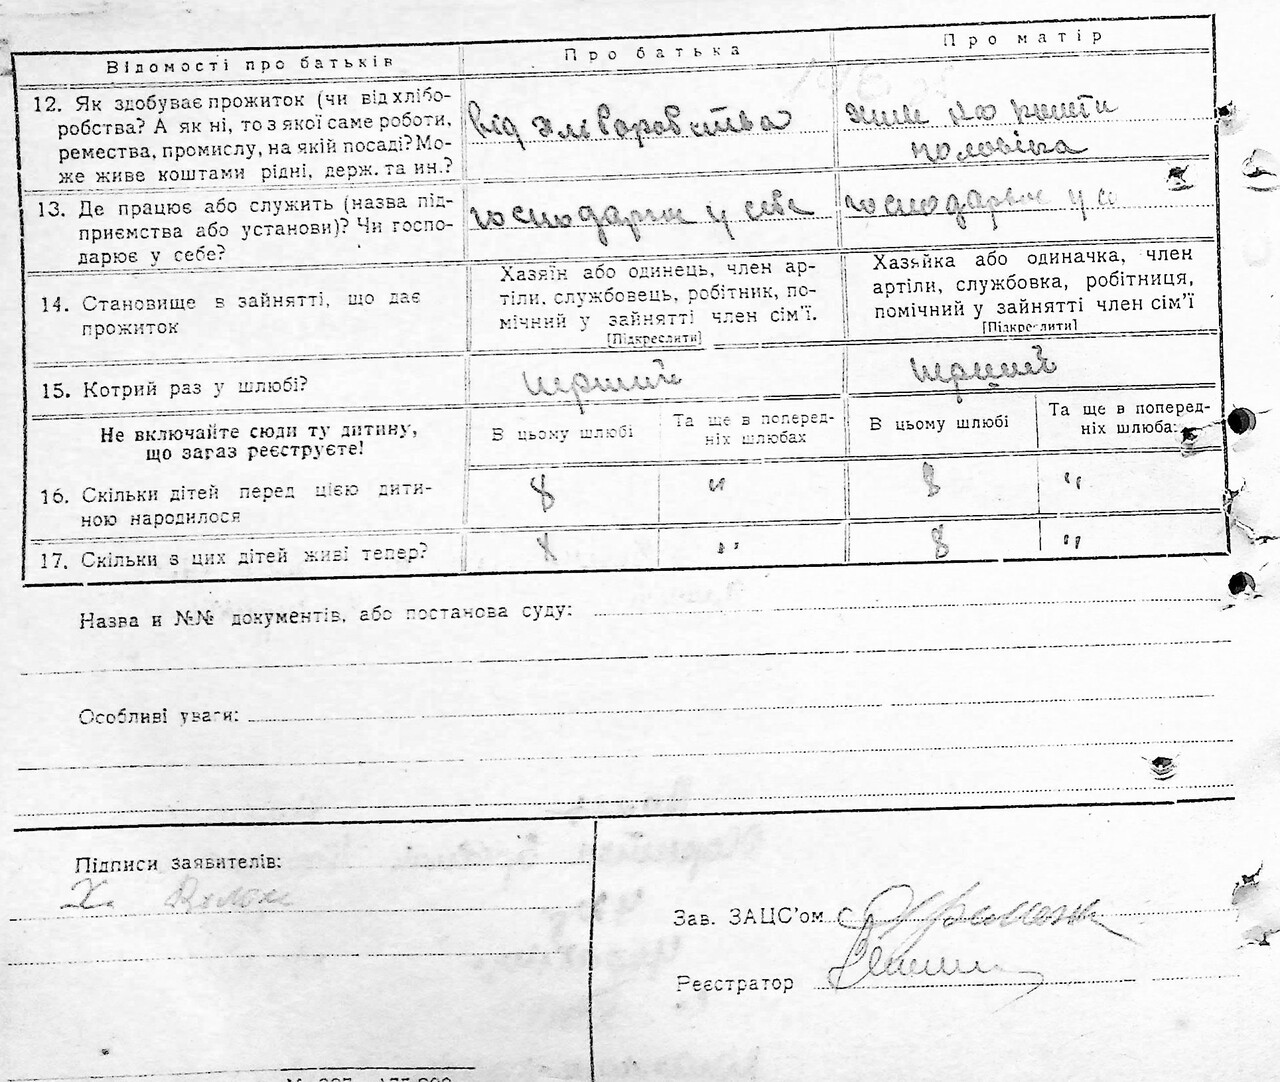 Відомості про батьків
Про батька
Про матір
12. Як здобуває прожиток (чи від хлібо-
робства? А як ні, то з якої саме роботи,
ремества, промислу, на якій посаді? Мо-
же живе коштами рідні, держ. та ин.?
від хліборобства
живе на кошти
чоловіка
13. Де працює або служить (назва під-
приємства або установи)? Чи госпо-
дарює у себе?
господарює у себе
господарює у со
14. Становище в зайнятті, що дає
прожиток
Хазяїн або одинець, член ар-
тіли, службовець, робітник, по-
мічний у зайнятті член сім'ї.
[Підкреслити]
Хазяйка або одиначка, член
артіли, службовка, робітниця,
помічний у зайнятті член сім'ї
[Підкреслити]
15. Котрий раз у шлюбі?
перший
перший
Не включайте сюди ту дитину,
що зараз реєструєте!
В цьому шлюбі
Та ще в поперед-
ніх шлюбах
В цьому шлюбі
Та ще в поперед-
ніх шлюбах
16. Скільки дітей перед цією дити-
ною народилося
8 " 8 "
17. Скільки з цих дітей живі тепер?
8 " 8 "
Назва и №№ документів, або постанова суду:
Особливі уваги:
Підписи заявителів:
Зав. ЗАЦС'ом
Реєстратор